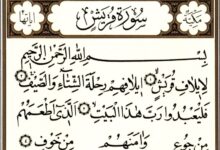 سُورَةُ قُرَيْشٍ
بِسْمِ اللَّهِ الرَّحْمَٰنِ الرَّحِيمِ
لِإِيلَافِ قُرَيْشٍ إِيلَافِهِمْ رِحْلَةَ الشِّتَاءِ وَالصَّيْفِ
فَلْيَعْبُدُوا رَبَّ هَٰذَا الْبَيْتِ الَّذِي أَطْعَمَهُم
مِّن جُوعٍ وَآمَنَهُم مِّنْ خَوْفٍ